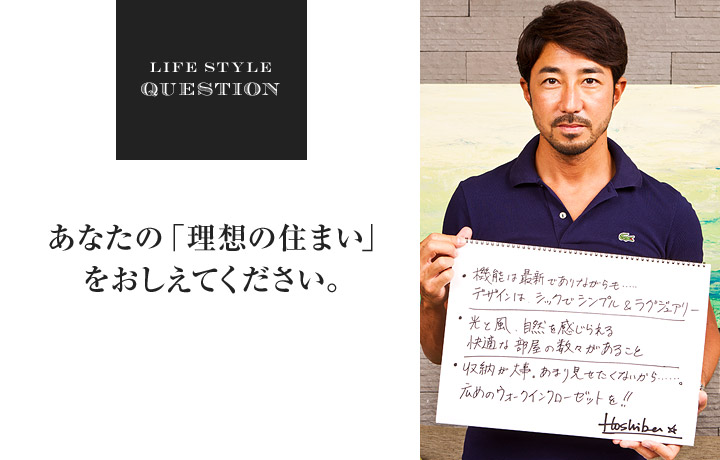 LIFE STYLE
QUESTION
あなたの「理想の住まい」
をおしえてください。
・機能は最新でありながらも……
デザインは、シックでシンプル&ラグジュアリー
・光と風、自然を感じられる
快適な部屋の数々があること
・収納が大事。あまり見せたくないから……。
広めのウォークインクローゼットを!!
Hoshiben☆